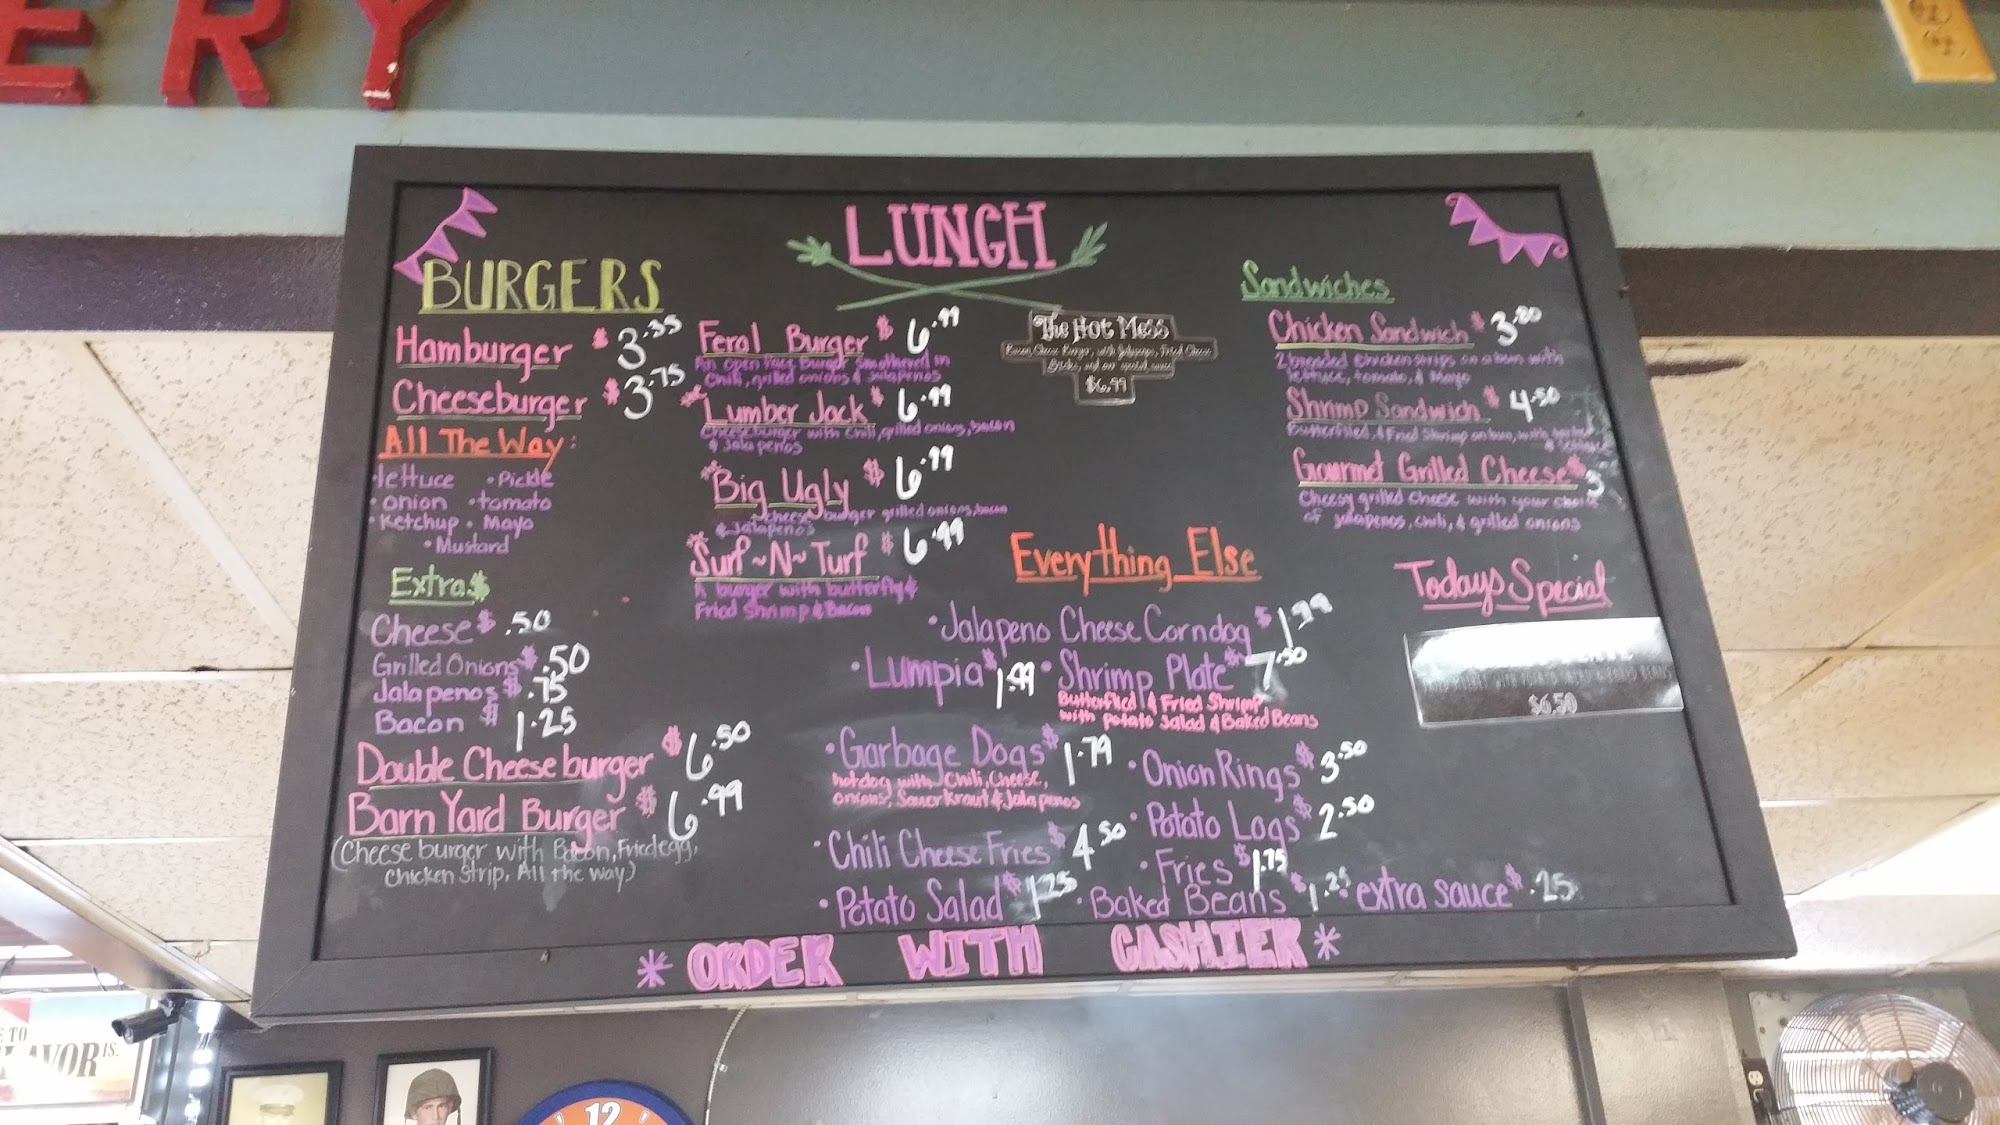 ERY
LUNCH
BURGERS
Hamburger $3.35
Cheeseburger $3.75
All The Way:
• lettuce • Pickle
• onion • tomato
• Ketchup • Mayo
• Mustard
Extra$
Cheese $.50
Grilled Onions $.50
Jalapenos $.75
Bacon $1.25
Double Cheeseburger $6.50
Barn Yard Burger $6.99
(Cheese burger with Bacon, Fried egg,
Chicken Strip, All the way)
Feral Burger $6.99
An open face Burger Smothered in
Chili, grilled onions & Jalapenos
Lumber Jack $6.99
Cheeseburger with Chili, grilled onions, bacon
& Jalapenos
Big Ugly $6.99
cheese burger grilled onions, bacon
& Jalapenos
Surf~N~Turf $6.99
A burger with butterfly &
Fried Shrimp & Bacon
The Hot Mess
Bacon Cheese Burger, with Jalapenos, Fried Cheese
Sticks, and our special sauce
$6.99
Sandwiches
Chicken Sandwich $3.80
2 breaded chicken strips on a bun with
lettuce, tomato, & Mayo
Shrimp Sandwich $4.50
Butterflied & Fried Shrimp on bun, with
Gourmet Grilled Cheese $3
Cheesy grilled cheese with your choice
of jalapenos, chili, & grilled onions
Everything Else
• Jalapeno Cheese Corndog $1.99
• Lumpia $1.99 • Shrimp Plate $7.50
Butterflied & Fried Shrimp
with potato Salad & Baked Beans
• Garbage Dogs $1.79
hotdog with Chili, Cheese,
onions, Sauerkraut & Jalapenos
• Onion Rings $3.50
• Potato Logs $2.50
• Chili Cheese Fries $4.50
• Fries $1.75
• Potato Salad $1.25 • Baked Beans $1.25 • extra sauce $.25
Todays Special
$6.50
* ORDER WITH CASHIER *
E TO
LAVOR IS.
12